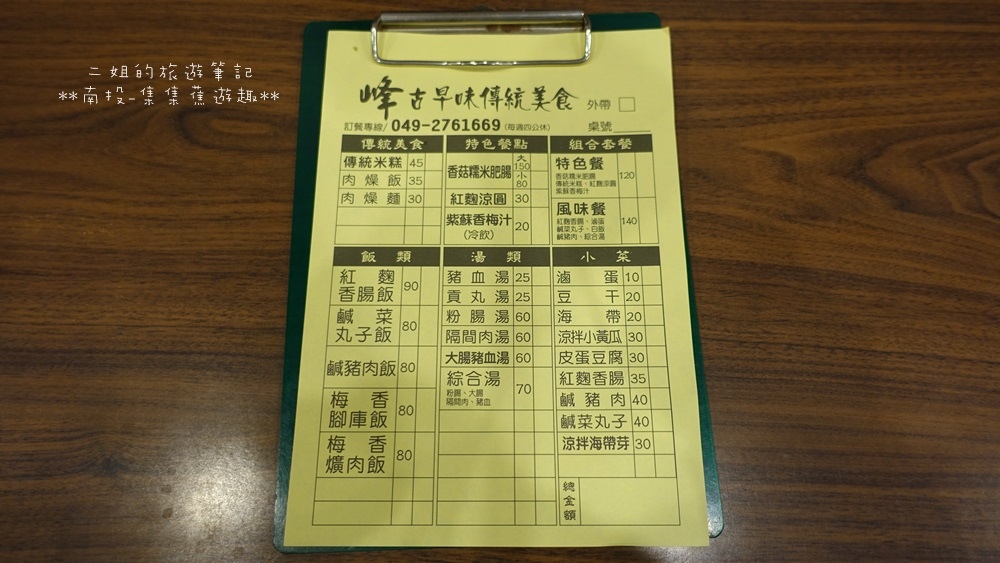 二姐的旅遊筆記
**南投-集集蕉遊趣**
峰古早味傳統美食 外帶
訂餐專線/ 049-2761669 (每週四公休) 桌號
傳統美食
傳統米糕 45
肉燥飯 35
肉燥麵 30
特色餐點
香菇糯米肥腸 大 150 小 80
紅麴涼圓 30
紫蘇香梅汁 20
(冷飲)
組合套餐
特色餐 120
香菇糯米肥腸
傳統米糕、紅麴涼圓
紫蘇香梅汁
風味餐 140
紅麴香腸、滷蛋
鹹菜丸子、白飯
鹹豬肉、綜合湯
飯類
紅麴
香腸飯 90
鹹菜
丸子飯 80
鹹豬肉飯 80
梅香
腳庫飯 80
梅香
爌肉飯 80
湯類
豬血湯 25
貢丸湯 25
粉腸湯 60
隔間肉湯 60
大腸豬血湯 60
綜合湯 70
粉腸、大腸
隔間肉、豬血
小菜
滷蛋 10
豆干 20
海帶 20
涼拌小黃瓜 30
皮蛋豆腐 30
紅麴香腸 35
鹹豬肉 40
鹹菜丸子 40
涼拌海帶芽 30
總金額